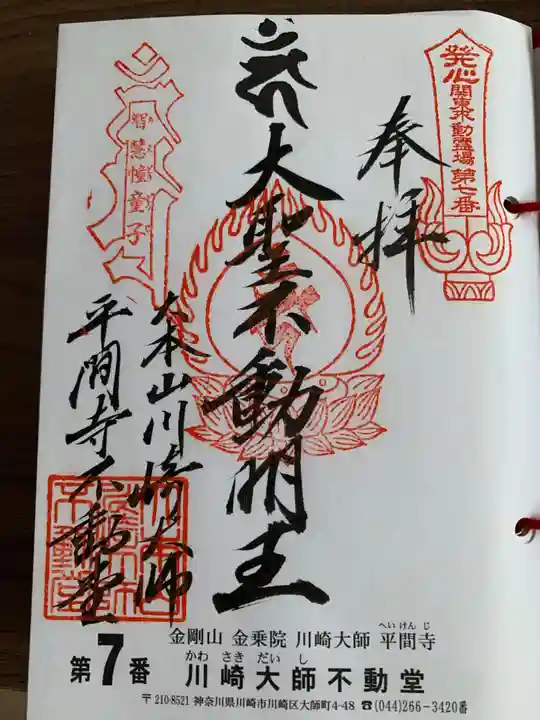 発心
関東三十六不動霊場第七番
奉拝
大聖不動明王
智慧幢童子
大本山川崎大師
平間寺不動堂
金剛山 金乗院 川崎大師 平間寺
へいけんじ
第7番
かわさきだいし
川崎大師不動堂
〒210-8521 神奈川県川崎市川崎区大師町4-48 ☎(044)266-3420番